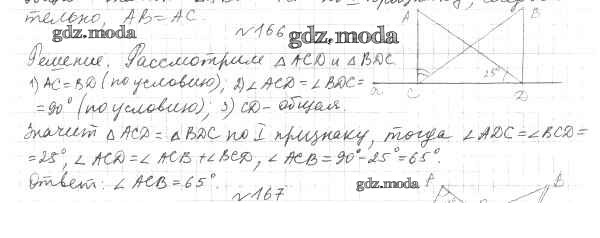 тельно, AB = AC.
№166
gdz.moda
gdz.moda
Решение. Рассмотрим △ ACD и △ BDC
1) AC = BD (по условию); 2) ∠ ACD = ∠ BDC =
= 90° (по условию); 3) CD - общая.
A
B
25°
a
C
D
Значит △ ACD = △ BDC по I признаку, тогда ∠ ADC = ∠ BCD =
= 25°, ∠ ACD = ∠ ACB + ∠ BCD, ∠ ACB = 90° - 25° = 65°.
Ответ: ∠ ACB = 65°.
gdz.moda
№167
B